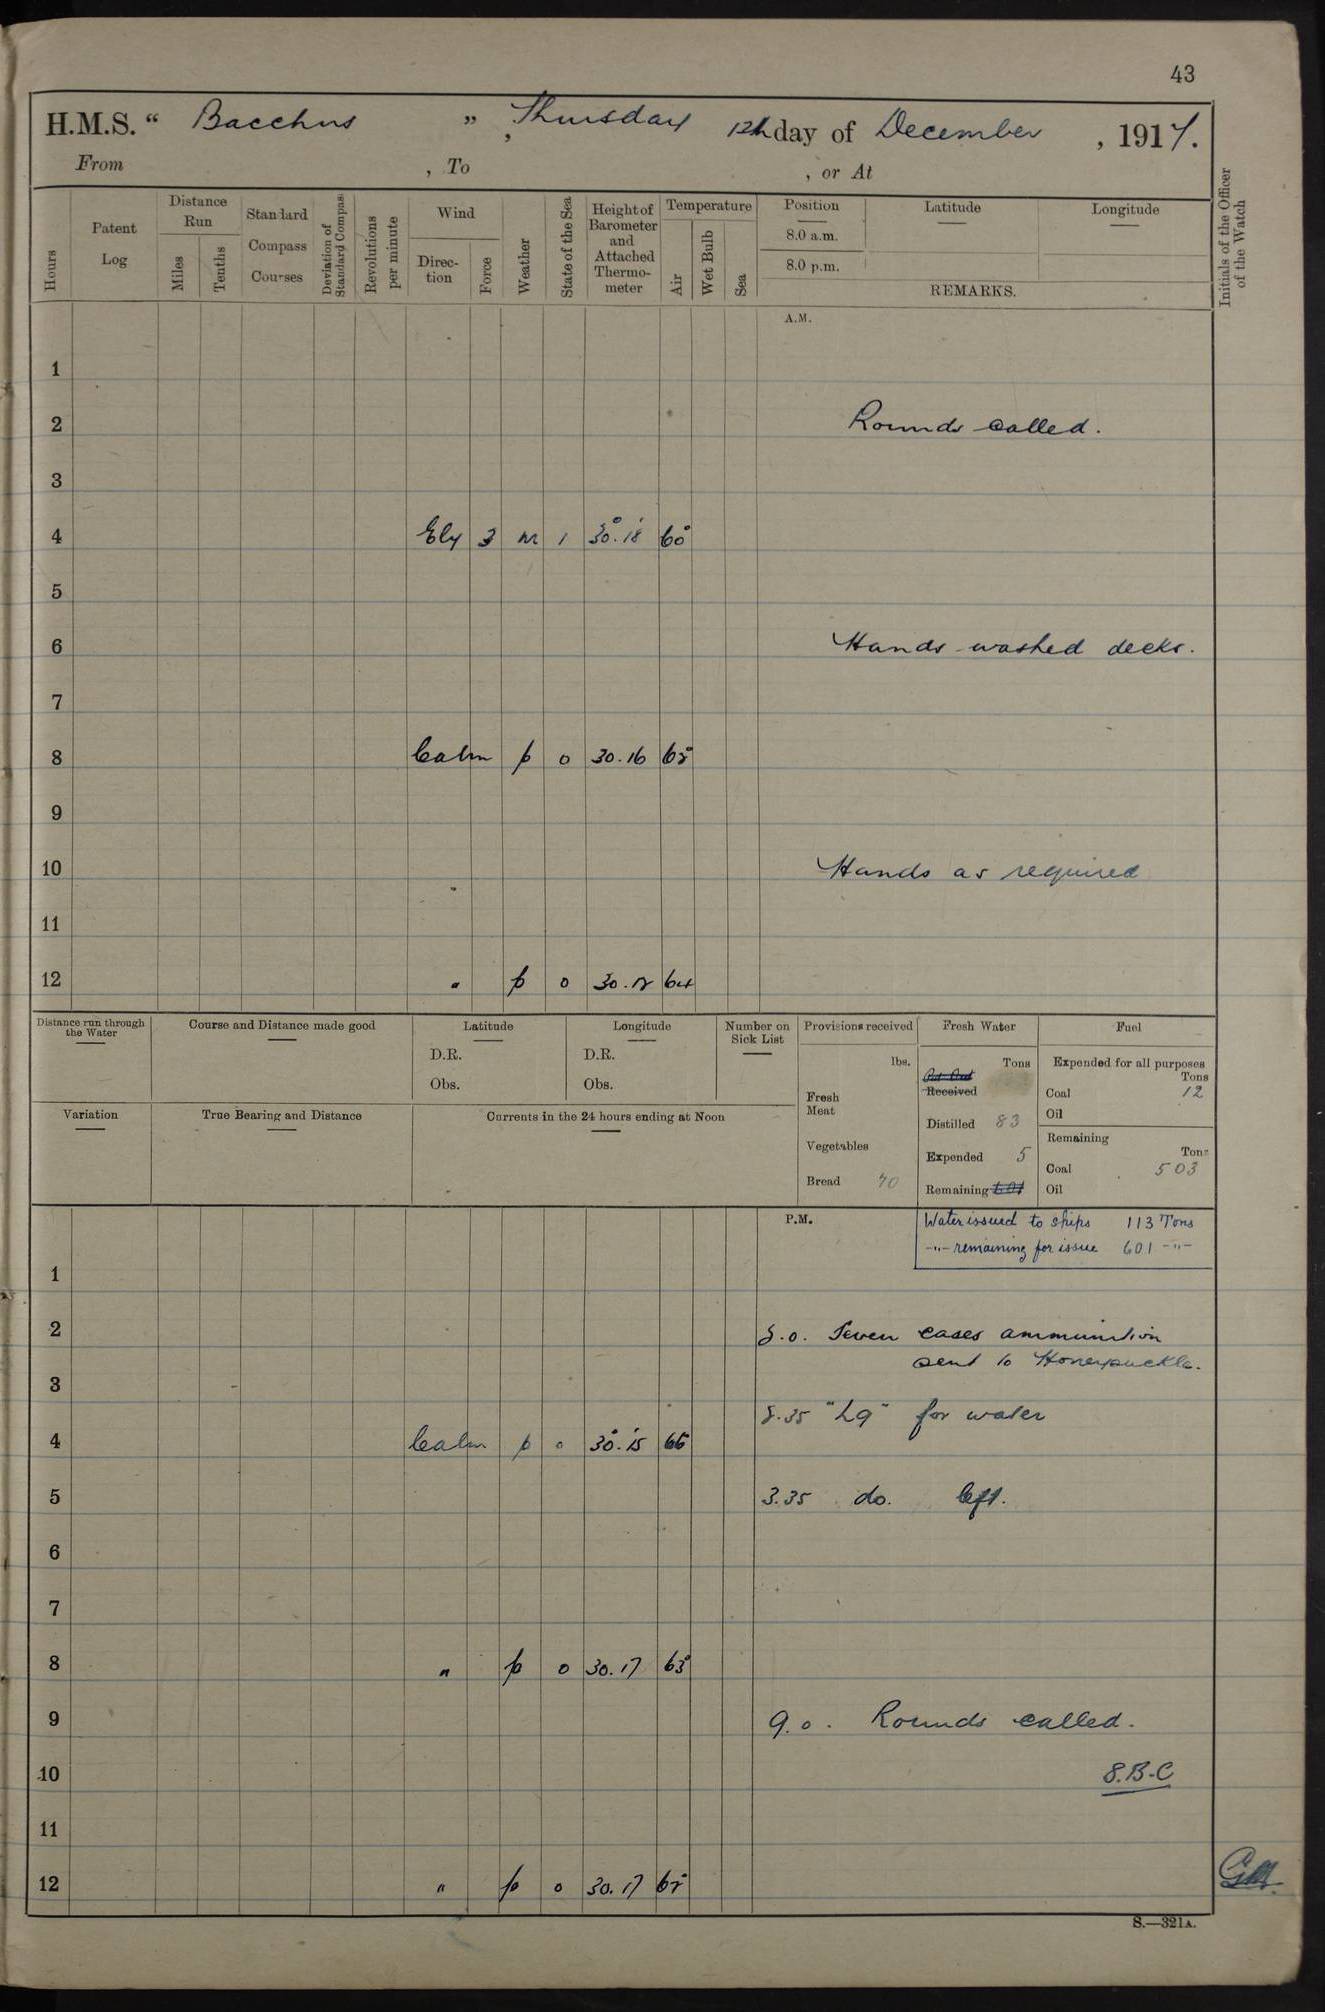 43
H.M.S. “ Bacchus ” , Thursday 12th day of December , 1917.
From , To , or At
Hours
Patent Log
Distance Run
Miles
Tenths
Standard Compass Courses
Deviation of Standard Compass
Revolutions per minute
Wind
Direction
Force
Weather
State of the Sea
Height of Barometer and Attached Thermometer
Temperature
Air
Wet Bulb
Sea
Position
8.0 a.m.
8.0 p.m.
Latitude
Longitude
REMARKS.
Initials of the Officer of the Watch
A.M.
1
2 Rounds called.
3
4 Ely 3 m 1 30.18 60
5
6 Hands washed decks.
7
8 Calm b 0 30.16
9
10 Hands as required
11
12 " b 0 64
Distance run through the Water
Course and Distance made good
Latitude
D.R.
Obs.
Longitude
D.R.
Obs.
Number on Sick List
Provisions received
lbs.
Fresh Meat
Vegetables
Bread 70
Fresh Water
Tons
Received
Distilled 83
Expended 5
Remaining 601
Fuel
Expended for all purposes
Tons
Coal 12
Oil
Remaining
Tons
Coal 503
Oil
Variation
True Bearing and Distance
Currents in the 24 hours ending at Noon
P.M.
Water issued to ships 113 Tons
-"- remaining for issue 601 -"-
1
2 Seven cases ammunition
sent to Honeysuckle.
3
"L9" for water
4 Calm b 0 30.15 66
5 3.35 do. left.
6
7
8 " b 0 30.17 63
9 9.0. Rounds called.
10 S.B.C
11
12 " b 0 30.17
S.—321A.